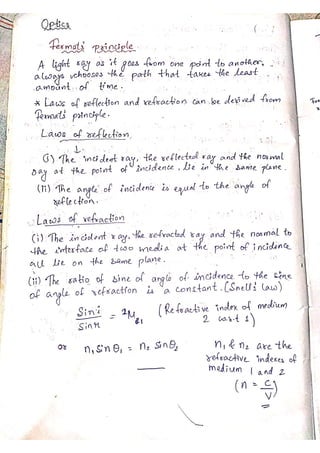 Optics
Fermat's principle
A light ray as it goes from one point to another,
always chooses the path that takes the least
amount of time.
* Laws of reflection and refraction can be derived from
Fermat's principle.
Laws of reflection
↓
(i) The incident ray, the reflected ray and the normal
ray at the point of incidence, lie in the same plane.
(ii) The angle of incidence is equal to the angle of
reflection.
Laws of refraction
(i) The incident ray, the refracted ray and the normal to
the interface of two media at the point of incidence
all lie on the same plane.
(ii) The ratio of sine of angle of incidence to the sine
of angle of refraction is a constant. (Snell's law)
Sin i / Sin r = (Refractive index of medium
2 w.r.t 1)
or n₁ Sin θ₁ = n₂ Sin θ₂ n₁ & n₂ are the
refractive indexes of
medium 1 and 2
(n = c/v)